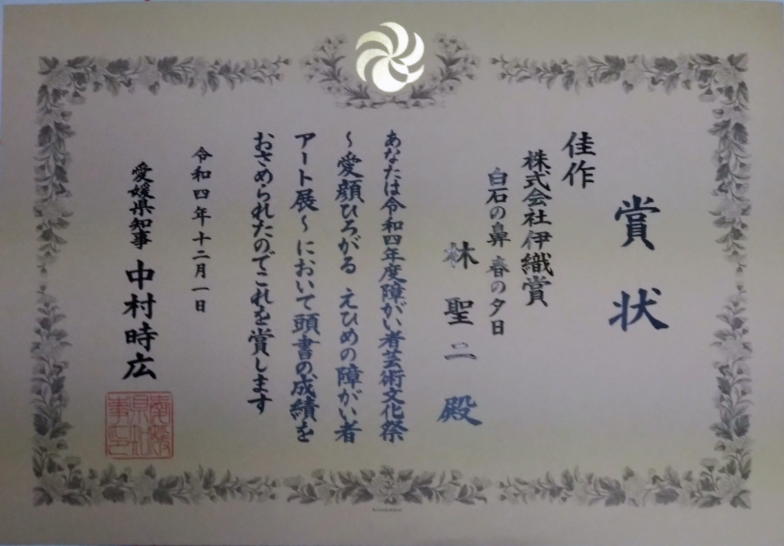 賞状
佳作
株式会社伊織賞
白石の鼻 春の夕日
林聖二殿
あなたは令和四年度障がい者芸術文化祭
～愛顔ひろがる えひめの障がい者
アート展～において頭書の成績を
おさめられたのでこれを賞します
令和四年十二月一日
愛媛県知事 中村時広